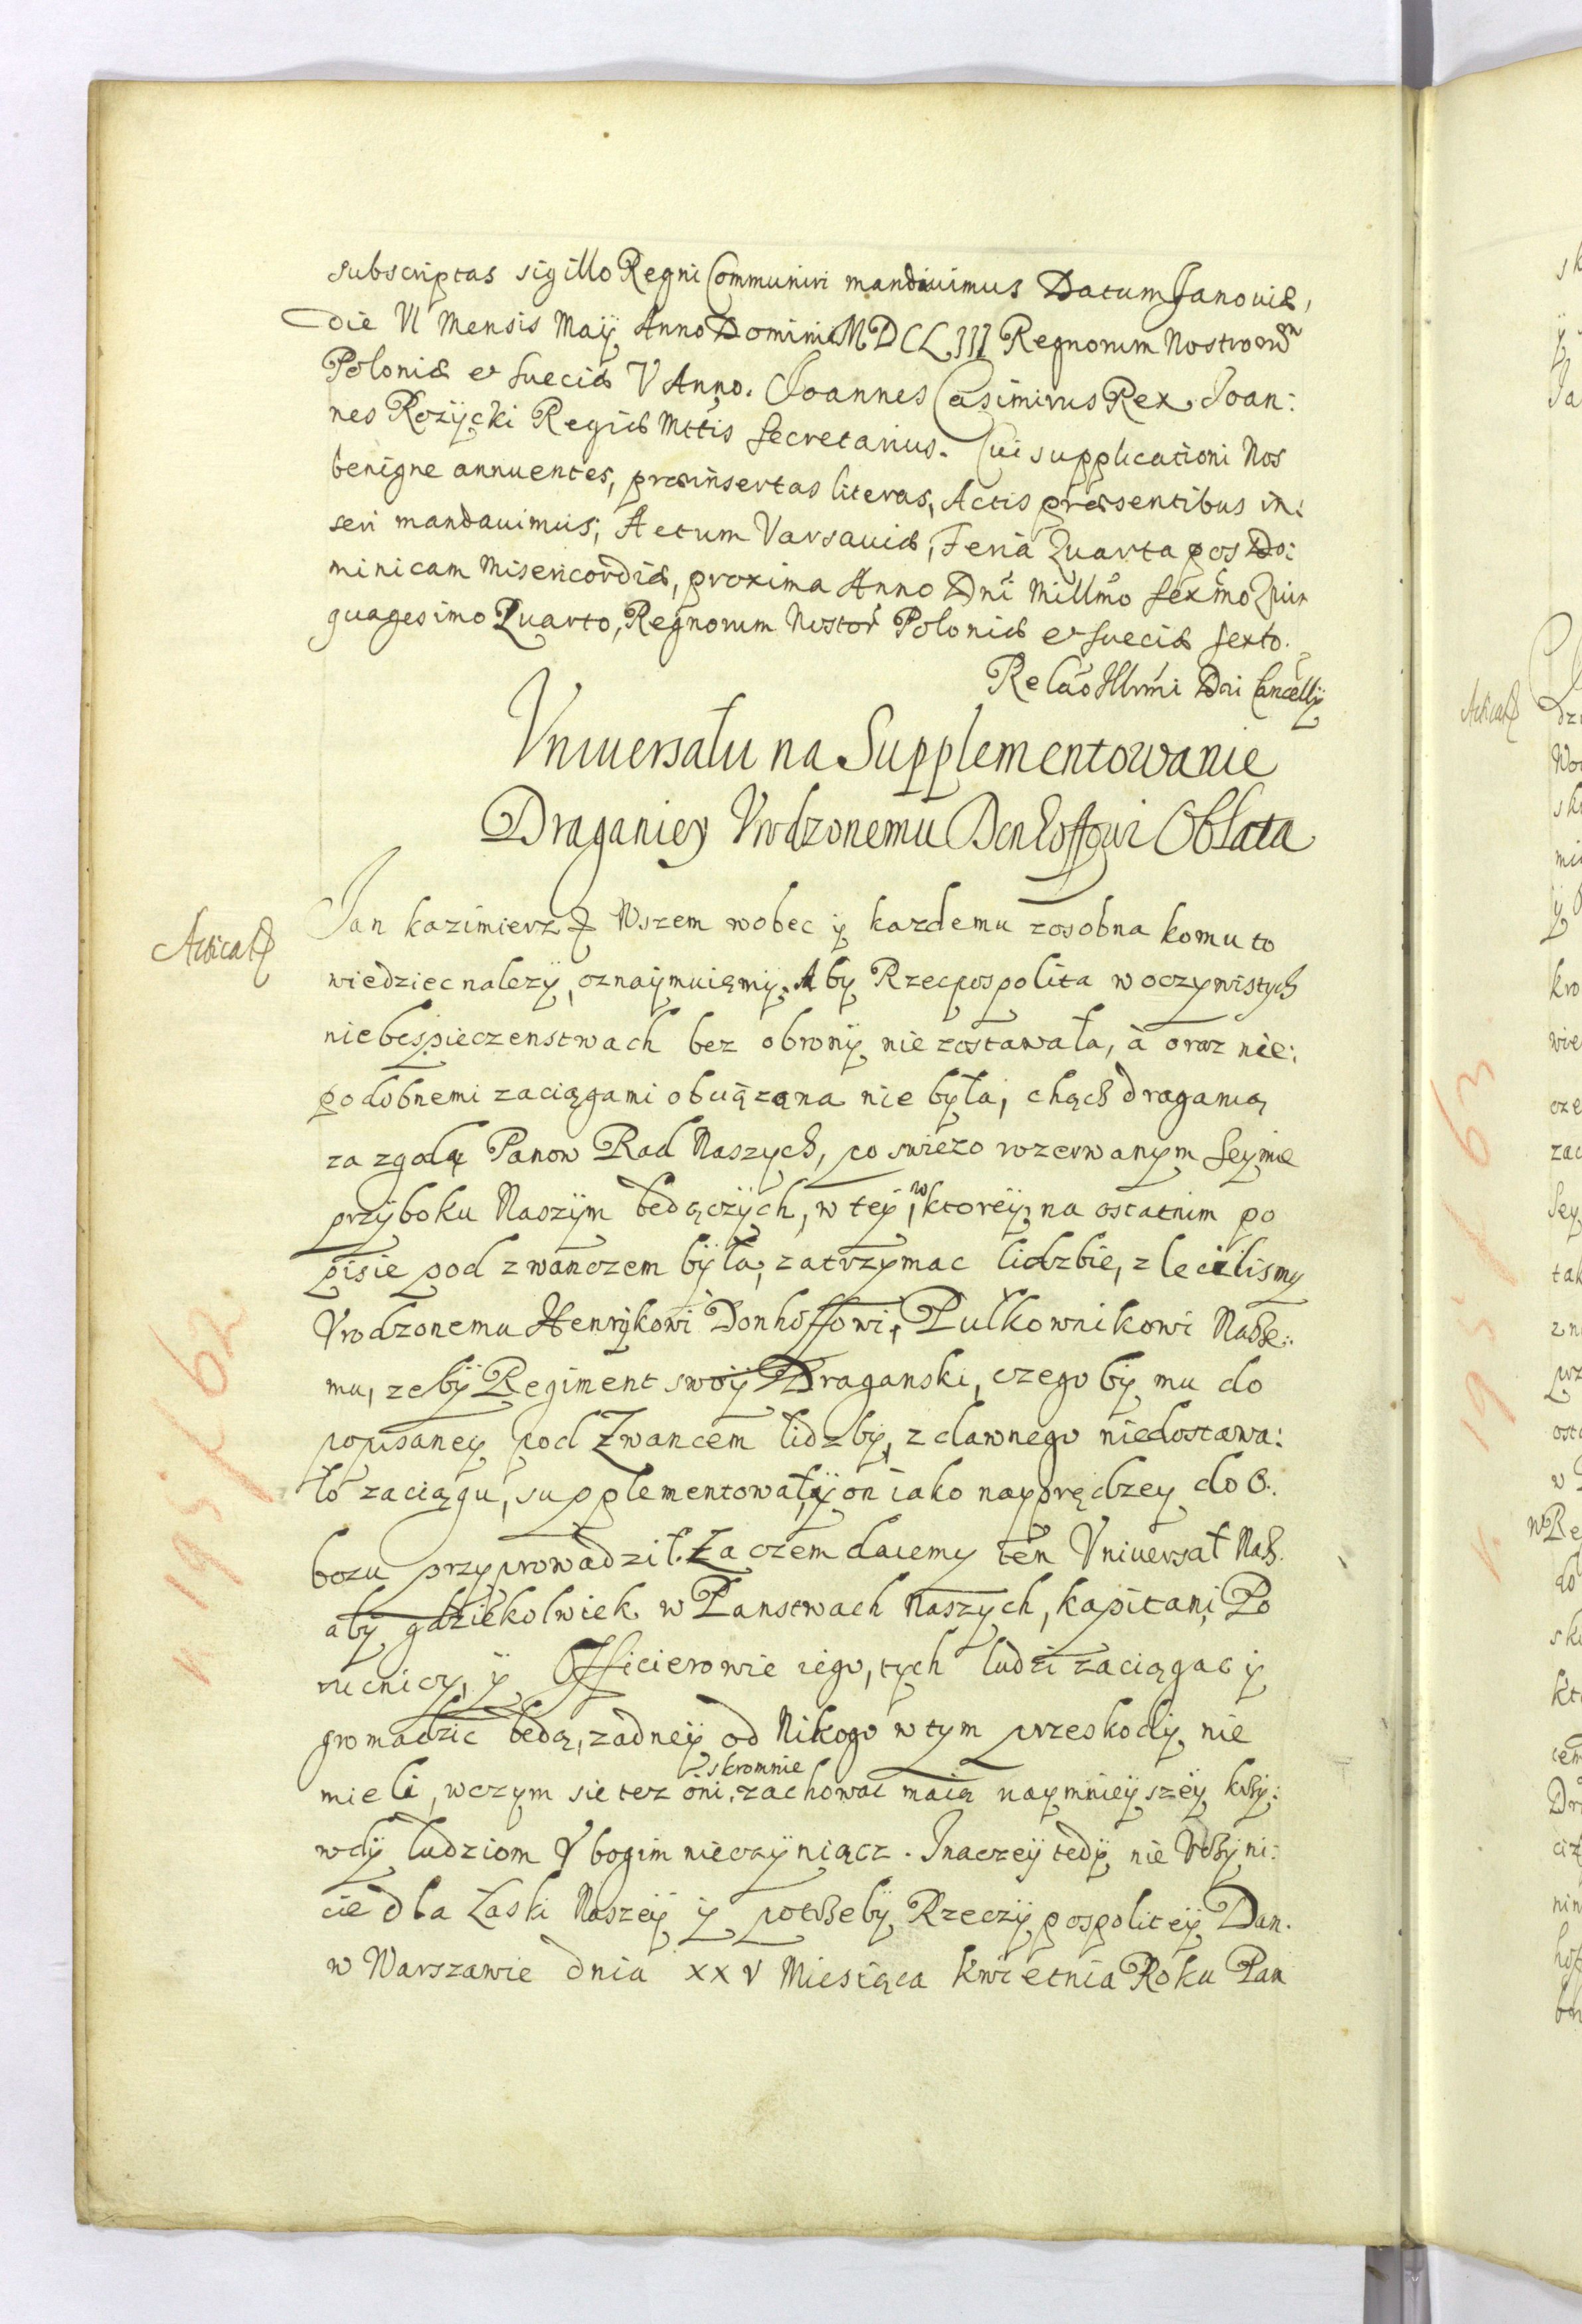 subscriptas sigillo Regni Communiri mandauimus Datum Janouiæ,
die VI Mensis Maÿ Anno Domini MDCLIII Regnorum Nostrorũ
Poloniæ et Sueciæ V Anno. Joannes Casimirus Rex. Joan:
nes Rożÿcki Regiæ Mttis Secretarius. Cui supplicationi Nos
benigne annuentes, præinsertas literas, Actis præsentibus in:
seri mandauimus; Actum Varsauiæ, Feria Quarta pos Do:
minicam Misericordiæ, proxima Anno Dni Millmo Sexmo Quin
quagesimo Quarto, Regnorum Nostor Poloniæ et Sueciæ Sexto.
Relao Illrmi Dni Cancellÿ
Vniuersału na Supplementowanie
Draganiey Vrodzonemu Denhoffowi Oblata
Jan Kazimierz Wszem wobec y kazdemu zosobna komu to
wiedziec nalezÿ, oznaÿmuięmÿ. Aby Rzecpospolita w oczywistych
niebespieczenstwach bez obronÿ nie zostawała, à oraz nie:
podobnemi zaciągami obciązana nie była, chącz draganią
za zgodą Panow Rad Naszych, po swiezo rozerwanym Seymie
przÿ boku Naszÿm będączÿch, w teÿ, w ktoreÿ na ostatnim po
pisie pod zwanczem bÿła, zatrzymac lidzbie, zlecilismy
Vrodzonemu Henrÿkowi Donhoffowi, Pułkownikowi Nasze:
mu, zebÿ Regiment swoÿ Draganski, czego by mu do
popisaney pod Zwancem lidzby, z dawnego niedostawa:
ło zaciągu, supplementował, ÿ on iako nayprędzey do O:
bozu przyprowadził. Za czem daiemy ten Vniuersał Nasz.
aby gdziekolwiek w Panstwach Naszych, Kapitani Po
rucnicy, ÿ Officierowie iego, tych ludzi zaciągac ÿ
gromadzic będą, zadneÿ od Nikogo w tym przeskody nie
mieli, wczym sie tez oni skromnie zachowac maią naymnieÿszeÿ krzÿ:
wdÿ ludziom Vbogim nieczÿniącz. Inaczeÿ tedÿ nie Vczyni:
cie dla Łaski Naszeÿ ÿ potrzebÿ Rzeczÿ pospoliteÿ Dan.
w Warszawie dnia XXV Miesiąca Kwietnia Roku Pan